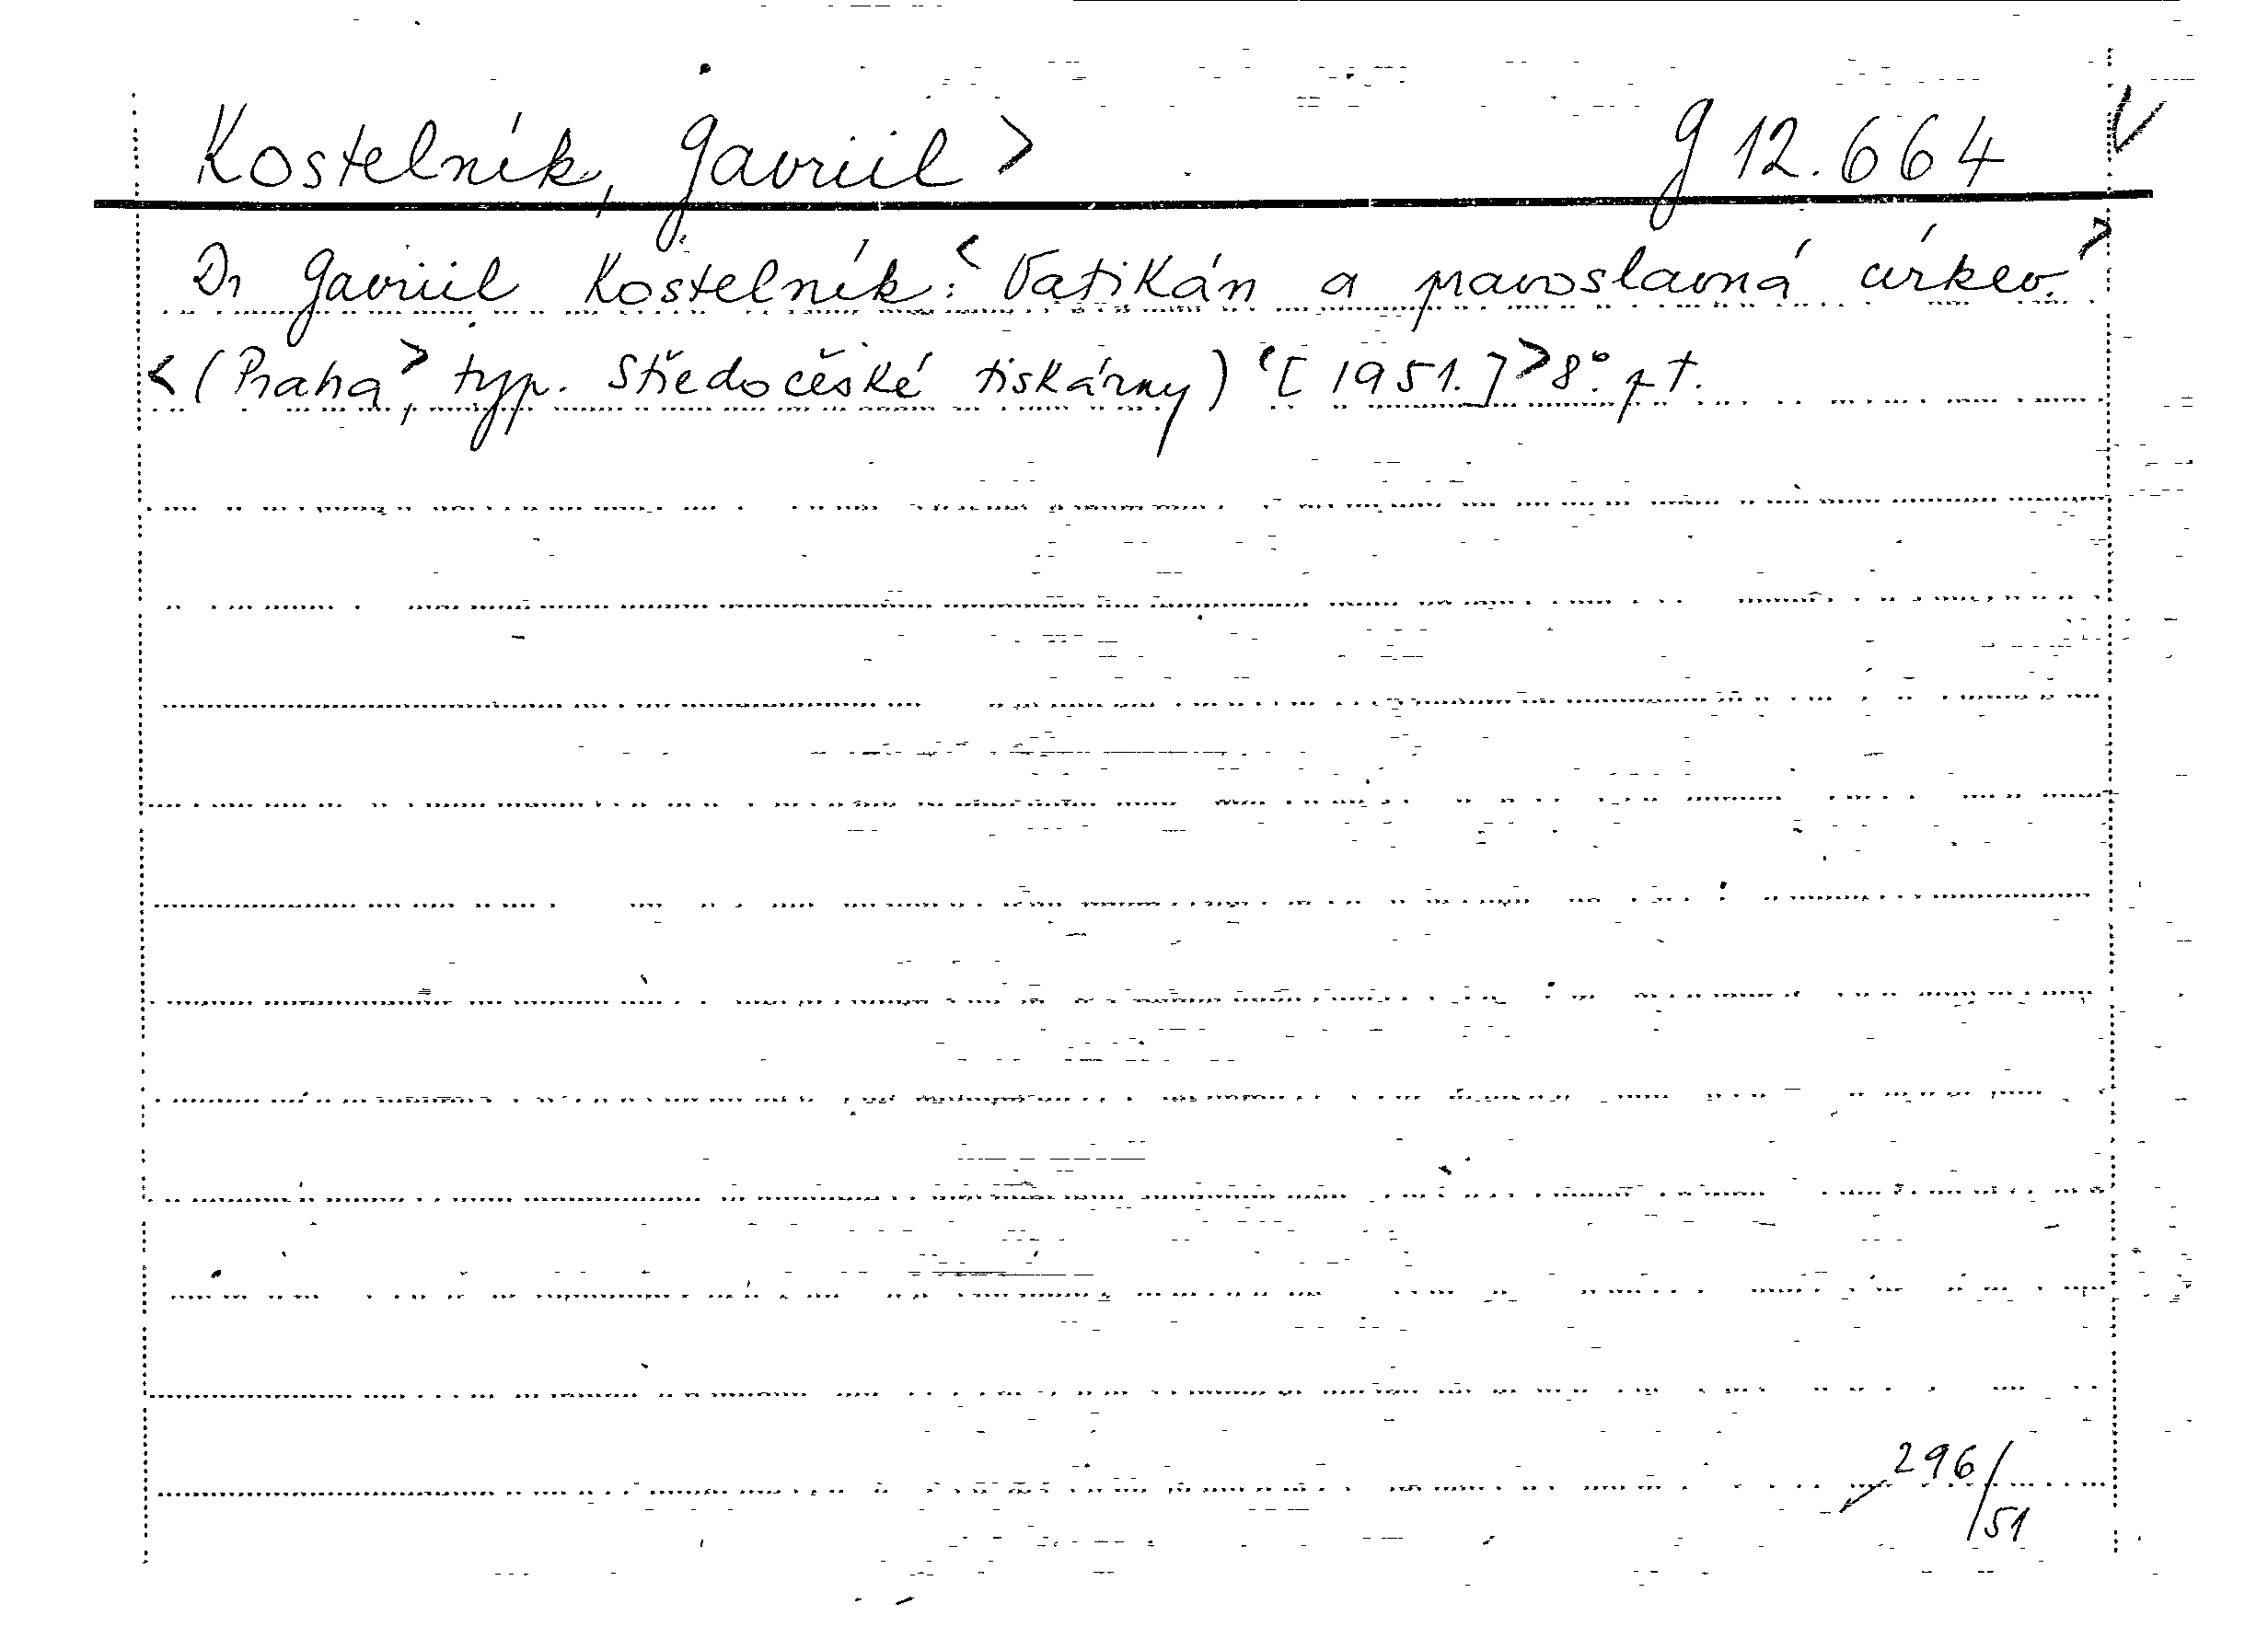 Kostelník, Gavriil > g 12.664 V
Dr Gavriil Kostelník: <Vatikán a pravoslavná církev.>
<(Praha,> typ. Středočeské tiskárny) <[1951.]> 8°. p t.
296/51